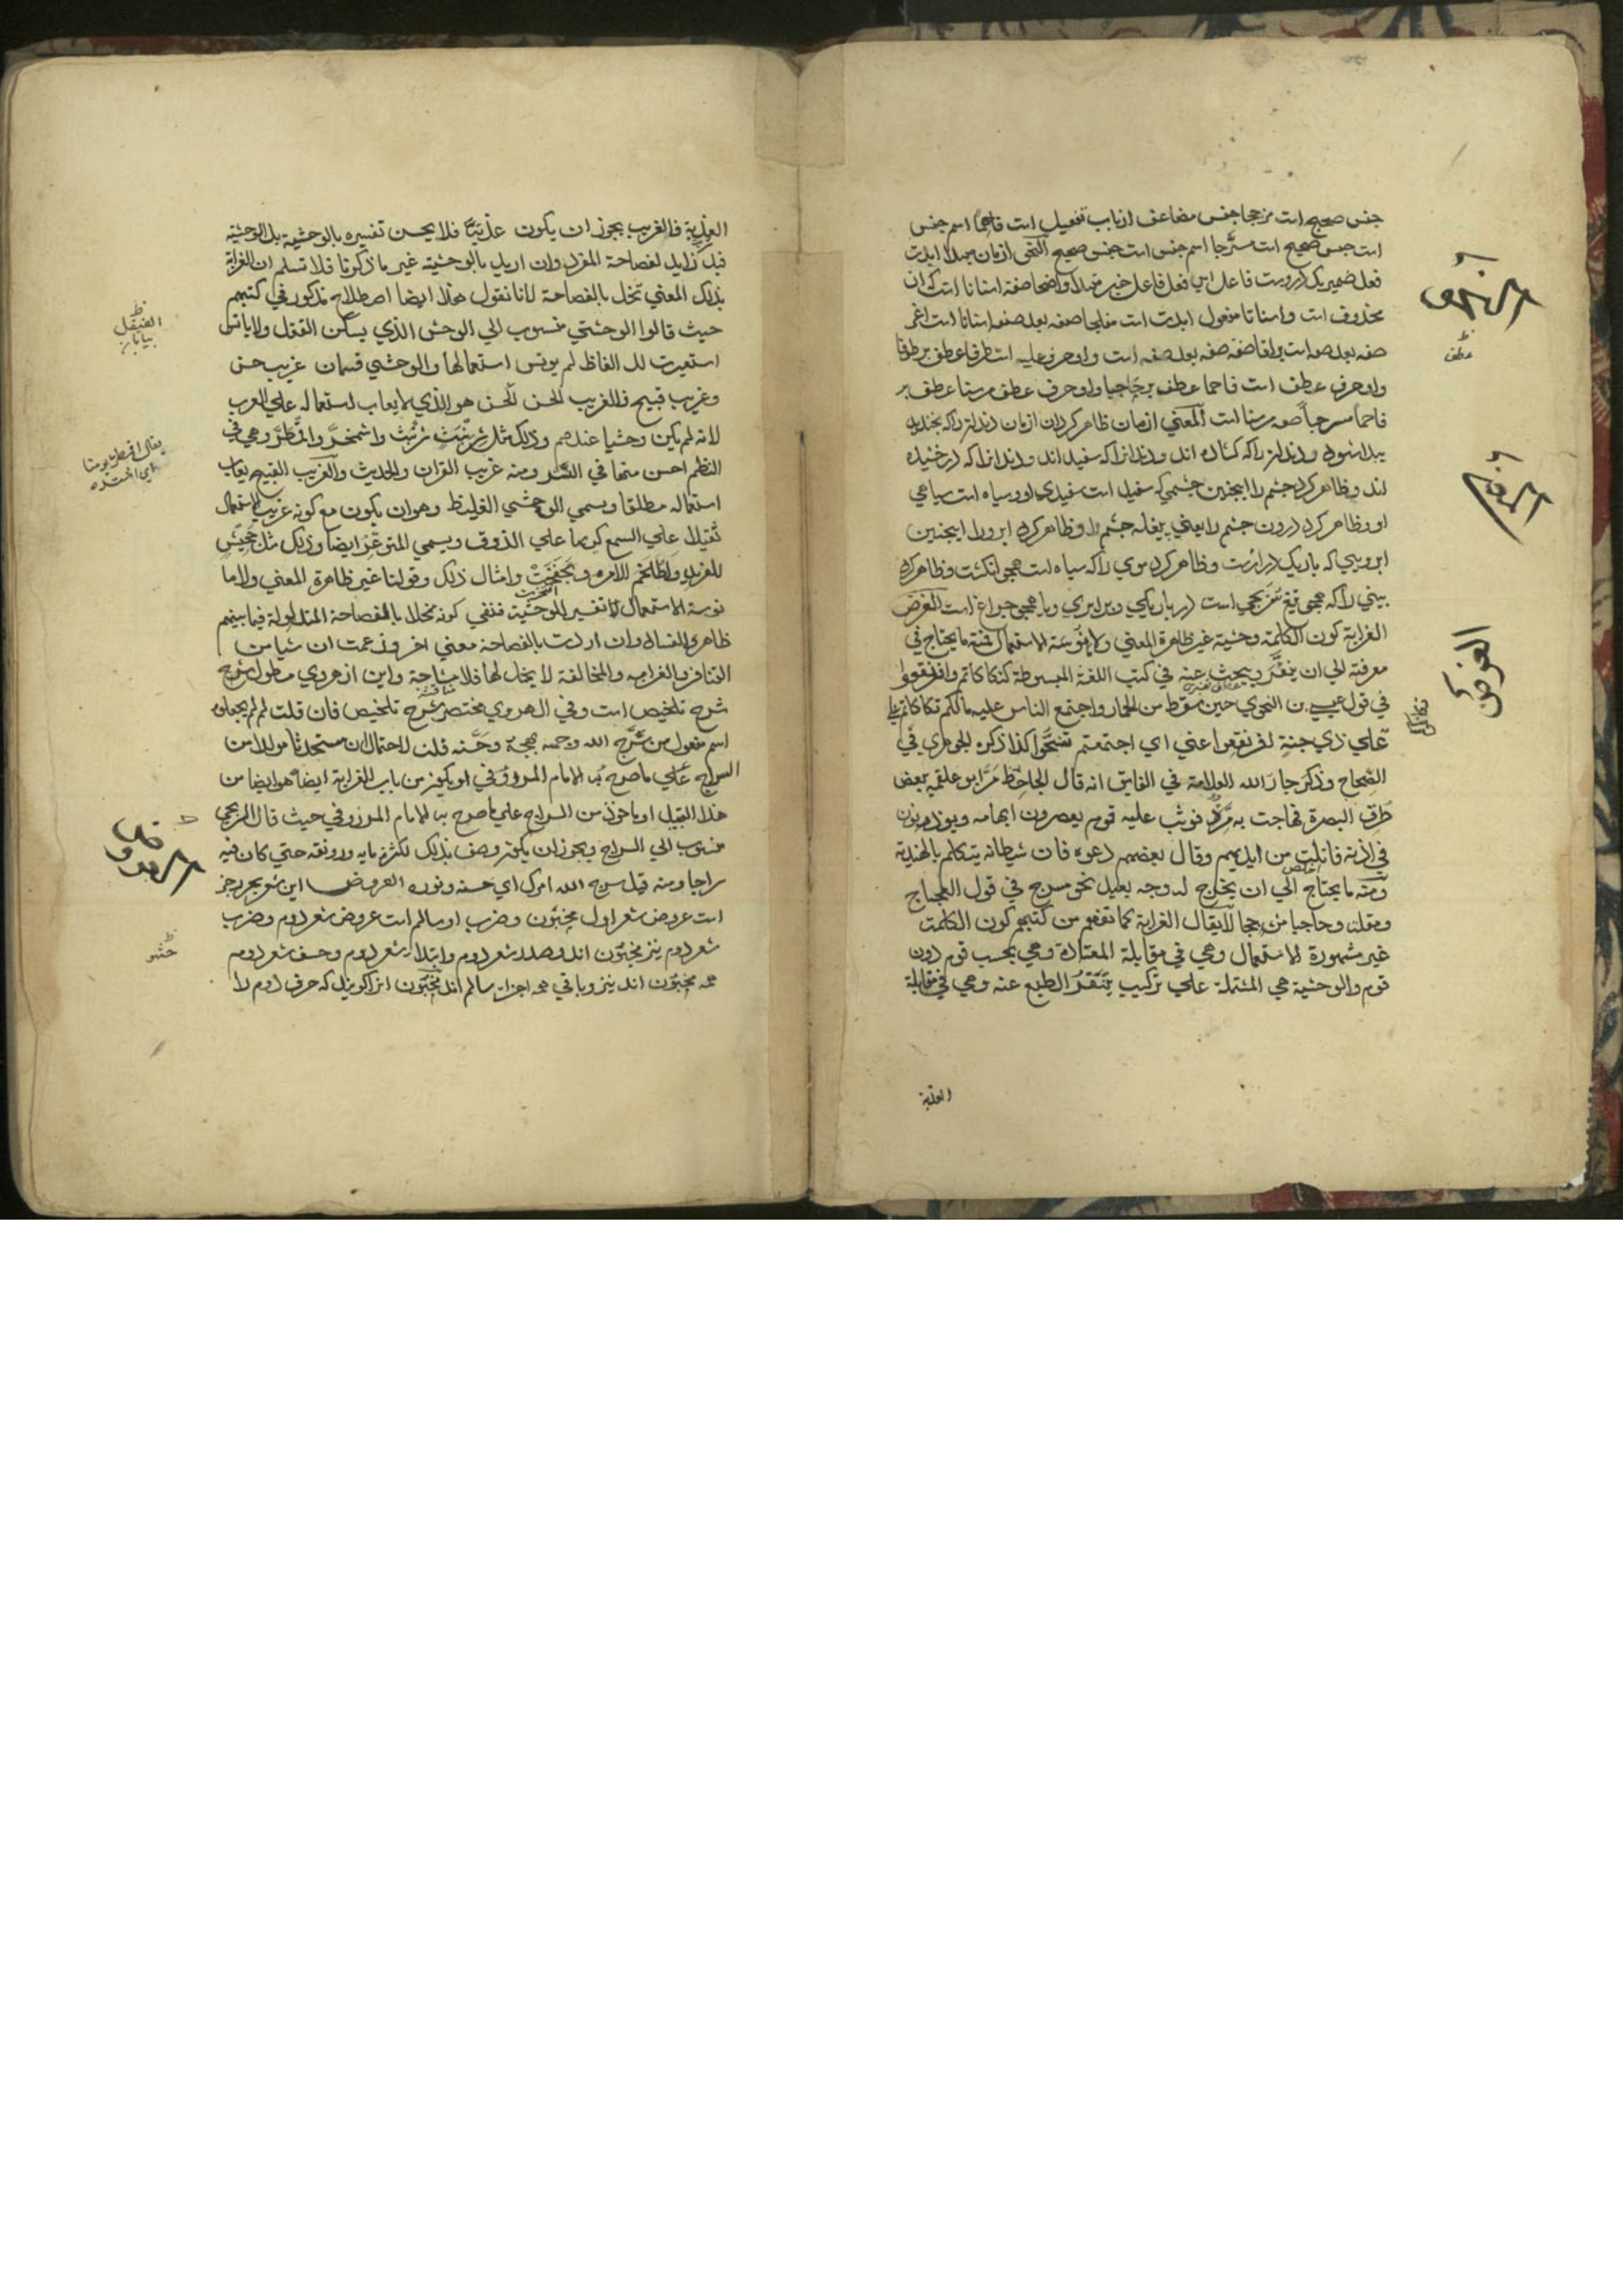 جنس صحیح است مزججا جنس مضاعف از باب تفعیل است فاحما اسم جنس
است جنس صحیح است مسرّجا اسم جنس است جنس صحیح النحو ازمان مبتدا ابدت
فعل ضمیر یک در وست فاعل این فعل فاعل خبر مبتدا واضحا صفه اسنانا است که ان
محذوف است واسنانا مفعول ابدت است مفلجا صفه بعد صفه اسنانا است اغر
صفه بعد صفه است براقا صفه بعد صفه است واو حرف علیه است طرفا عطف بر طرفا
واو حرف عطف است فاحما عطف بر حاجبا واو حرف عطف مرسنا عطف بر
فاحما مسرجاً صفه مرسنا است المعنی ازمان ظاهر کرد ان ازمان دندانرا که بخندیدن
پیدا شود و دندانرا که کشاده اند و دندانرا که سفید اند و دندانرا که درخشیده
اند و ظاهر کرد چشم را اینچنین چشمی که سفید است سفیدی او و سیاه است سیاهی
او و ظاهر کرد درون چشم را یعنی پیغله چشم را و ظاهر کرد ابرو را اینچنین
ابرویی که باریک دراز است و ظاهر کرد موی را که سیاه است همچو انکشت و ظاهر کرد
بینی را که همچو تیغ سریجی است در باریکی و برابری و یا همچو چراغ است الغرض
الغرابة کون الکلمة وحشیة غیر ظاهرة المعنی ولا مانوسة الاستعمال فمنه ما یحتاج فی
معرفته الی ان ینقّر ویبحث عنه فی کتب اللغة المبسوطة کتکاکاتم وافرنقعوا
فی قول عیسی بن النحوی حین سقط من الحمار واجتمع الناس علیه مالکم تکاکاتم علی
علی ذی جنة افرنقعوا عنی ای اجتمعتم تنحّوا کذا ذکره الجوهری فی
الصحاح وذکر جار الله العلامة فی الفایق انه قال الجاحظ مرّ ابو علقمة ببعض
طرق البصرة فهاجت به مرّة فوثب علیه قوم یعصرون ابهامه ویوذنون
فی اذنه فافلت من ایدیهم وقال بعضهم دعوه فان شیطانه یتکلم بالهندیة
ومنه ما یحتاج الی ان یخرج له وجه بعید نحو مسرج فی قول العجاج
ومقلة وحاجبا مزججا لا یقال الغرابة کما تفهم من کتبهم کون الکلمة
غیر مشهورة الاستعمال وهی فی مقابلة المعتادة وهی بحسب قوم دون
قوم والوحشیة هی المشتملة علی ترکیب یتنفّر الطبع عنه وهی فی مقابلة
العذبة
النحو
عطف
المعنی
الغرض
العذبة فالغریب یجوز ان یکون عذبا فلا یحسن تفسیره بالوحشیة بل الوحشیة
قید زاید لفصاحة المفرد وان ارید بالوحشیة غیر ما ذکرنا فلا نسلم ان الغرابة
بذلک المعنی تخل بالفصاحة لانا نقول هذا ایضا اصطلاح مذکور فی کتبهم
حیث قالوا الوحشی منسوب الی الوحش الذی یسکن القفل
استعیرت للالفاظ لم یونس استعمالها والوحشی قسمان غریب حسن
وغریب قبیح فالغریب الحسن هو الذی لا یعاب استعماله علی العرب
لانه لم یکن وحشیا عندهم وذلک مثل شرنبث واشمخرّ واقمطرّ وهی فی
النظم احسن منها فی النثر ومنه غریب القران والحدیث والغریب القبیح یعاب
استعماله مطلقا ویسمی الوحشی الغلیظ وهو ان یکون مع کونه غریب الاستعمال
ثقیلا علی السمع کریها علی الذوق ویسمی المتوعّر ایضا وذلک مثل جحیش
للفرید واطلخم الامر وجفخت وامثال ذلک وقولنا غیر ظاهرة المعنی ولا ما
نوسة الاستعمال تفسیر للوحشیة فنفی کونه مخلا بالفصاحة المتداولة فیما بینهم
ظاهر الفساد وان اردت بالفصاحة معنی اخر وزعمت ان شیا من
التنافر والغرابه والمخالفة لا یخل لها فلا مشاحة واین از هروی مطول شرح
شرح تلخیص است وفی الهروی مختصر شرح تلخیص فان قلت لم لم یجعلوه
اسم مفعول من سرّج الله وجهه بهجه وحسّنه قلنا لاحتمال ان مستحدثا مولدا من
السراج علی ما صرح به الامام المرزوقی او یکون من باب الغرابة ایضا هو ایضا من
هذا القبیل او ماخوذ من السراج علی ما صرح به الامام المرزوقی حیث قال السریجی
منسوب الی السراج ویجوز ان یکون وصف بذلک لکثرة مایه ورونقه حتی کان فیه
سراجا ومنه قیل سرج الله امرک ای حسنه ونوره العروض این شعر بحر رجز
است عروض شعر اول مخبون وضرب او سالم است عروض شعر دوم وضرب
شعر دوم نیز مخبون اند وصدر شعر دوم وابتدای شعر دوم وحشو شعر دوم
همه مخبون اند نیز وباقی همه اجزاء سالم اند مخبون انرا کویند که حرف دوم را
العروض
حشو